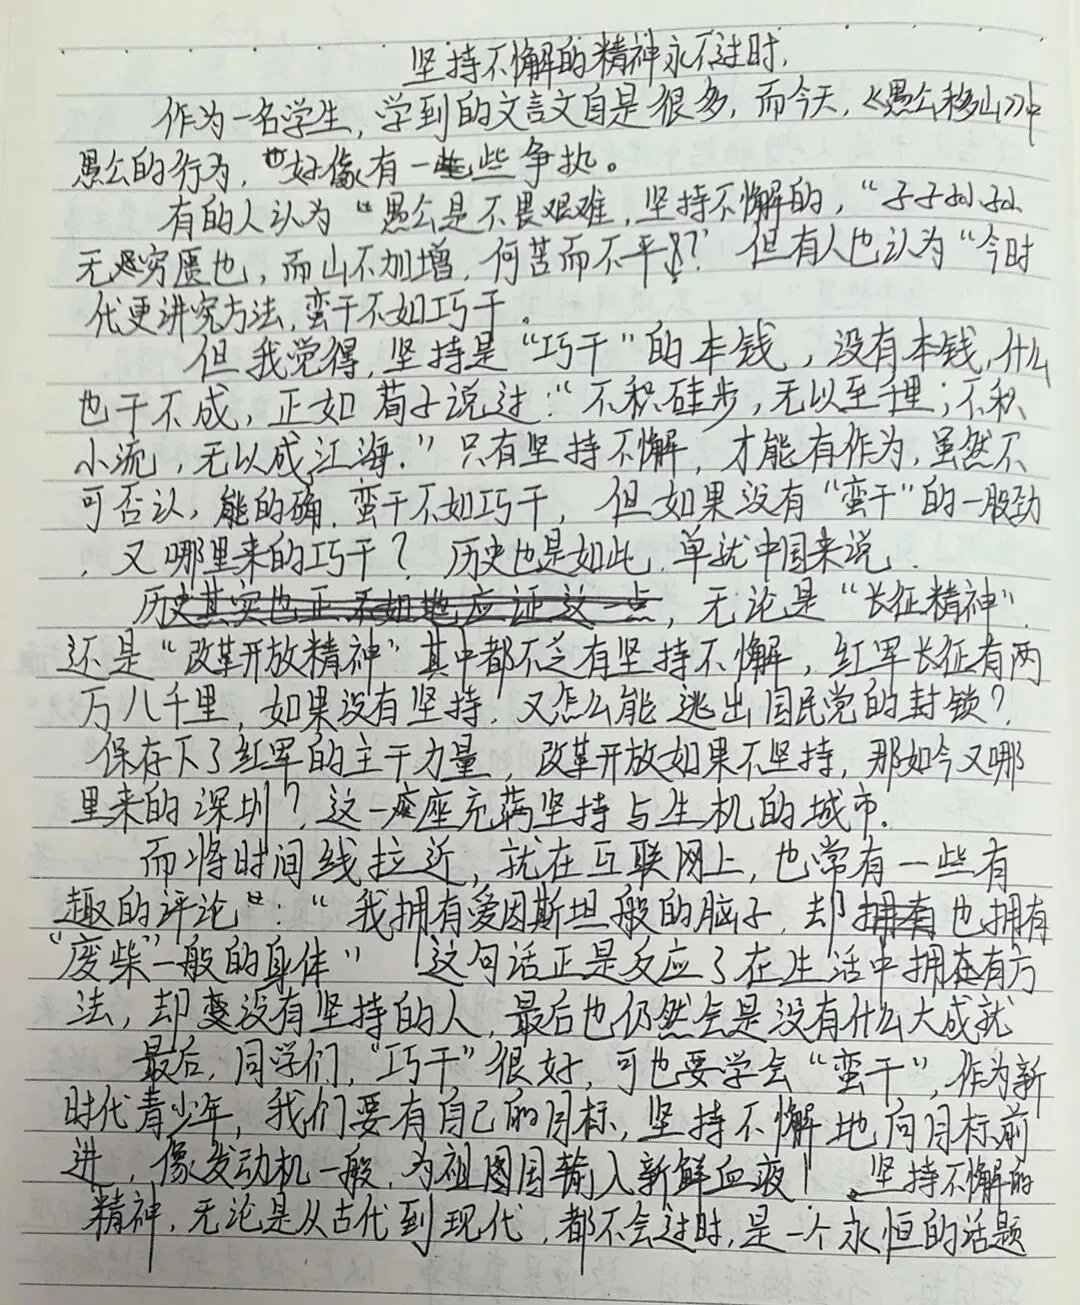 坚持不懈的精神永不过时.
作为一名学生,学到的文言文自是很多,而今天,《愚公移山》中
愚公的行为,好像有一些争执。
有的人认为“愚公是不畏艰难,坚持不懈的,“子子孙孙
无穷匮也,而山不加增,何苦而不平?” 但有人也认为“今时
代更讲究方法,蛮干不如巧干。
但我觉得,坚持是“巧干”的本钱,没有本钱,什么
也干不成,正如荀子说过:“不积硅步,无以至千里;不积
小流,无以成江海.”只有坚持不懈,才能有作为,虽然不
可否认,的确,蛮干不如巧干,但如果没有“蛮干”的一股劲
,又哪里来的巧干?历史也是如此,单就中国来说.
历史其实也正不如他应证这一点,无论是“长征精神”
还是“改革开放精神”其中都不乏有坚持不懈,红军长征有两
万八千里,如果没有坚持,又怎么能逃出国民党的封锁?
保存下了红军的主干力量,改革开放如果不坚持,那如今又哪
里来的深圳?这一座充满坚持与生机的城市.
而将时间线拉近,就在互联网上,也常有一些有
趣的评论:“我拥有爱因斯坦般的脑子,却拥有也拥有
“废柴”一般的身体” 这句话正是反应了在生活中拥有方
法,却没有坚持的人,最后也仍然会是没有什么大成就
最后,同学们,“巧干”很好,可也要学会“蛮干”,作为新
时代青少年,我们要有自己的目标,坚持不懈地向目标前
进,像发动机一般,为祖国输入新鲜血液! 坚持不懈的
精神,无论是从古代到现代,都不会过时,是一个永恒的话题